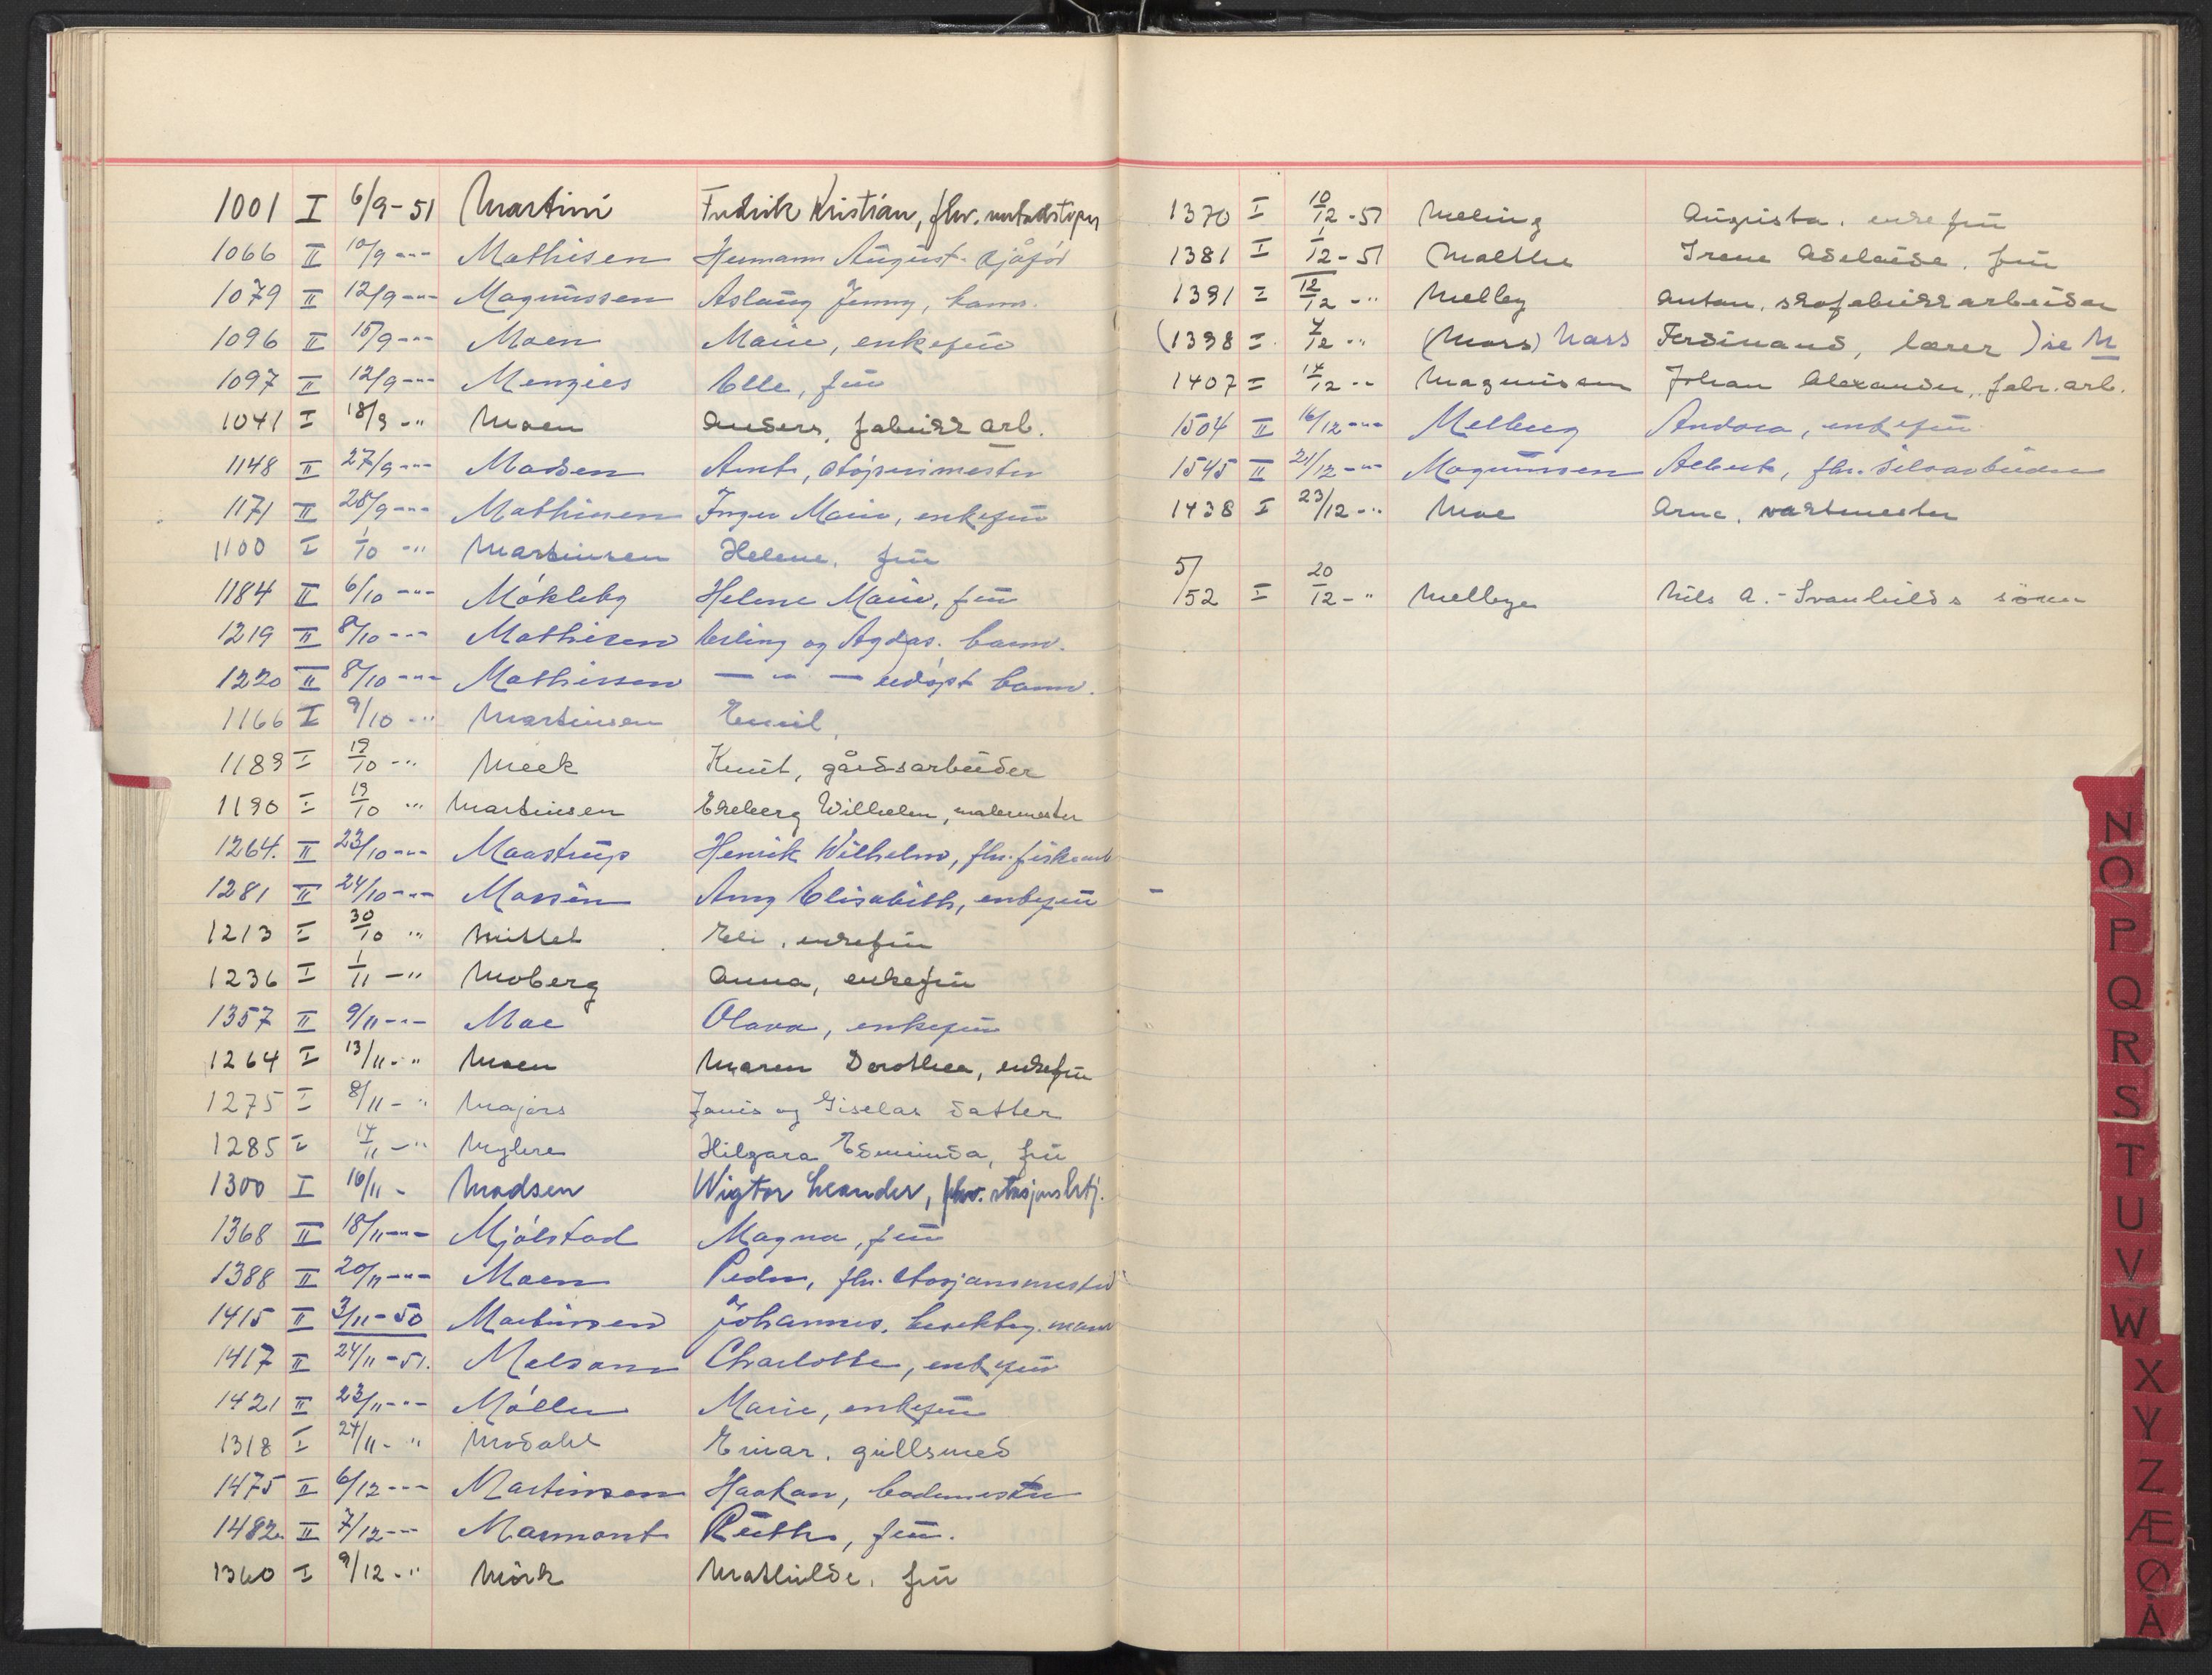 1001 I 6/9-51 Martini Fredrik Kristian, fhv. metallstøper
1066 II 10/9 -"- Mathisen Hermann August. sjåfør
1079 II 12/9 -"- Magnussen Aslaug Jenny, barn.
1096 II 15/9 -"- Moen Marie, enkefru
1097 II 12/9 -"- Menzies Elle, fru
1041 I 18/9 -" Moen Anders, fabrikk arb.
1148 II 27/9 -"- Madsen Arnt, støperimester
1171 II 28/9 -"- Mathisen Inger Marie, enkefru
1100 I 1/10 -" Martinsen Helene, fru
1184 II 6/10 -"- Møkleby Helene Marie, fru
1219 II 8/10 -"- Mathisen Erling og Agdas. barn.
1220 II 8/10 -"- Mathisen — " — udøpt barn.
1166 I 9/10 -" Martinsen Emil,
1189 I 19/10 -" Meek Knut, gårdsarbeider
1190 I 19/10 -" Martinsen Ekeberg Wilhelm, malermester
1264. II 23/10 -"- Maastrup Henrik Wilhelm, fhv.
1281 II 24/10 -"- Massén Amy Elisabeth, enkefru -
1213 I 30/10 " Mittet Eli, enkefru
1236 I 1/11 -" Moberg Anna, enkefru
1357 II 9/11 -"- Moe Olava, enkefru
1264 I 13/11 -" Moen Maren Dorothea, enkefru
1275 I 8/11 -" Majors Janis og Giselas datter
1285 I 14/11 -" Myhre Hilgara Edminda, fru
1300 I 16/11 - Madsen Wigtor Leander, fhv. stasjonsbetj.
1368 II 18/11 -"- Mjølstad Magna, fru
1388 II 20/11 -"- Moen Peder, fhv. stasjonsmester
1415 II 3/11-50 Martinsen Johannes,
1417 II 24/11-51. Melsom Charlotte, enkefru
1421 II 23/11 -"- Møller Marie, enkefru
1318 I 24/11 -" Modahl Einar, gullsmed
1475 II 6/12 -"- Martinsen Haakon, bademester
1482. II 7/12 -"- Marmont Ruth, fru.
1360 I 9/12 -" Mörk Mathilde, fru
1370 I 10/12-51 Meling Augusta, enkefru
1381 I 1/12-51 Malthe Irene Adelaide, fru
1391 I 12/12 -" Melby Anton, skofabrikkarbeider
(1398 I 7/12 -" (Mass) Nass Ferdinand, lærer ) se N
1407 I 14/12 -" Magnussen Johan Alexander, fabr. arb.
1504 II 16/12 -"- Melberg Andora, enkefru
1545 II 21/12 -"- Magnussen Albert, fhv.
1438 I 23/12 -" Moe Arne, vaktmester
5/52 I 20/12 -" Melbye Nils A. - Svanhilds sönn
N
O
P
Q
R
S
T
U
V
W
X
Y
Z
Æ
Ø
Å